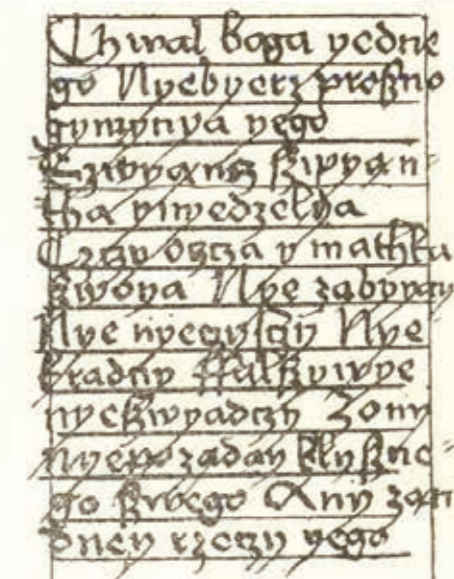 Chwal boga yedne
go Nyebyerz proßno
gymyenya yego
Czwyancz ßwyan
tha ynyedzelya
Czczy oszcza y mathka
ßwoya Nye zabyyay
Nye nyeczysczy Nye
kradny Falßywye
nyeßwyadczy Zony
nyepozaday blyßne
go ßwego Any zad
dney rzeczy yego